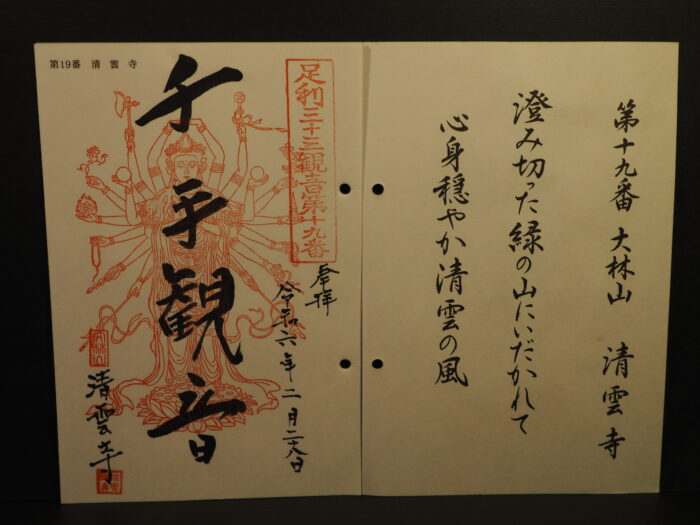 第十九番 大林山 清雲寺
澄み切った緑の山にいだかれて
心身穏やか清雲の風
第19番 清雲寺
足利三十三観音第十九番
奉拝
令和六年二月二大日
千手観音
清雲寺